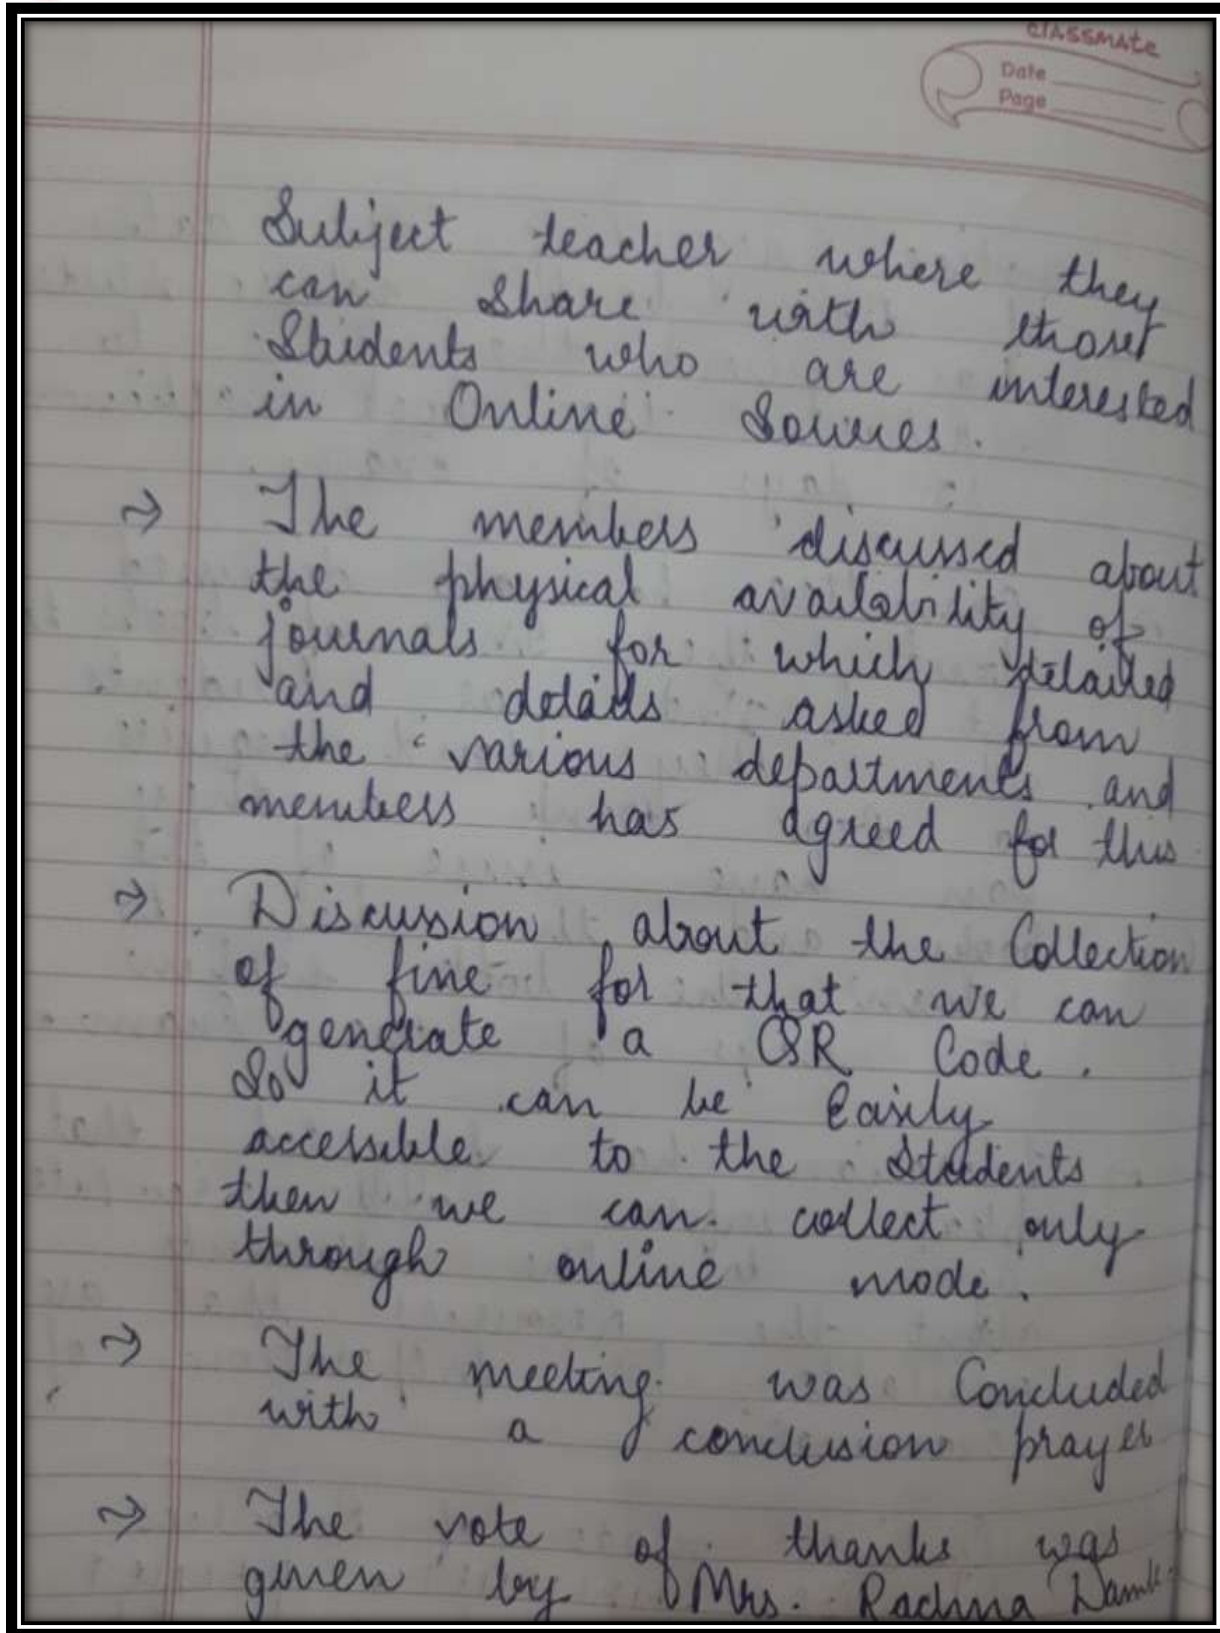 classmate
Date
Page
Subject teacher where they
can share with those
Students who are interested
in Online Sources.
→ The members discussed about
the physical availability of
journals for which detailed
and details asked from
the various departments and
members has agreed for this
→ Discussion about the Collection
of fine for that we can
generate a QR Code.
So it can be Easily
accessible to the Students
then we can collect only
through online mode.
→ The meeting was Concluded
with a conclusion prayer
→ The vote of thanks was
given by Mrs. Rachna